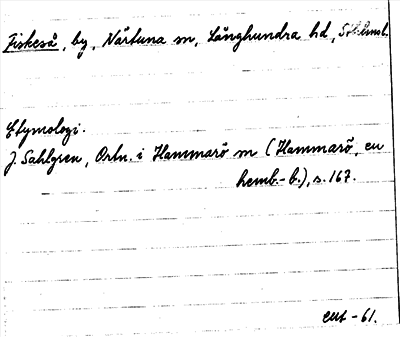 Fiskeså, by, Närtuna sn, Långhundra hd, Sthlmsl.
Etymologi.
J. Sahlgren, Ortn. i Hammarö sn (Hammarö, en
hemb.-b.), s. 167.
-61.